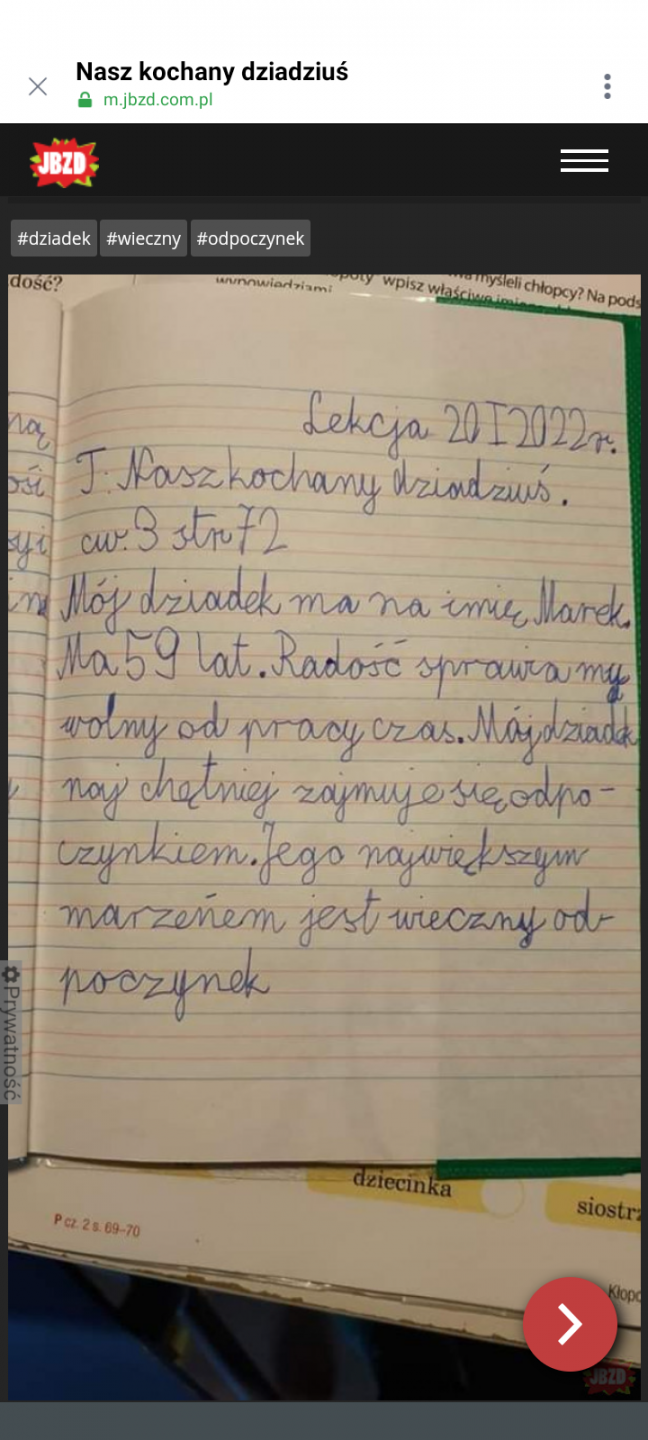 Nasz kochany dziadziuś
m.jbzd.com.pl
JBZD
#dziadek #wieczny #odpoczynek
dość?
wypowiedziami
wpisz właściwe
myśleli chłopcy? Na pods
ną
ości
syi
Lekcja 20 I 2022r.
T: Nasz kochany dziadziuś.
ćw. 3 str 72
Mój dziadek ma na imię Marek.
Ma 59 lat. Radość sprawia my
wolny od pracy czas. Mój dziadek
naj chętniej zajmuje się odpo-
czynkiem. Jego największym
marzeńem jest wieczny od-
poczynek
Prywatność
dziecinka
siostrz
P cz. 2 s. 69–70
Kłopo
JBZD